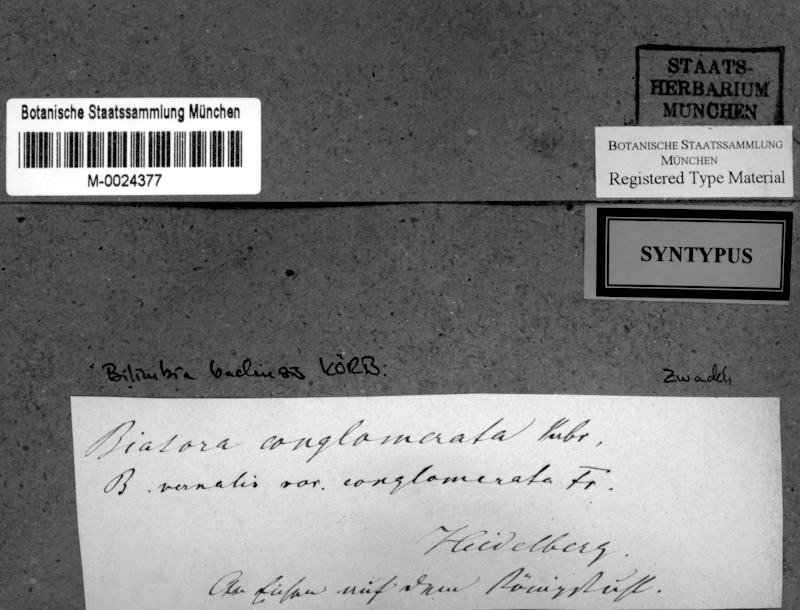 STAATS-
HERBARIUM
MUNCHEN
Botanische Staatssammlung München
M-0024377
BOTANISCHE STAATSSAMMLUNG
MÜNCHEN
Registered Type Material
SYNTYPUS
Bilimbia badensis KÖRB.
Zwackh
Biatora conglomerata
B. vernalis var. conglomerata Fr.
Heidelberg.
An Eichen auf dem Königstuhl.